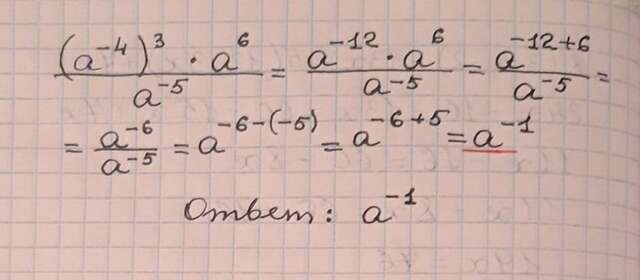 (a⁻⁴)³ · a⁶ / a⁻⁵ = a⁻¹² · a⁶ / a⁻⁵ = a⁻¹²⁺⁶ / a⁻⁵ =
= a⁻⁶ / a⁻⁵ = a⁻⁶⁻⁽⁻⁵⁾ = a⁻⁶⁺⁵ = a⁻¹
Ответ: a⁻¹